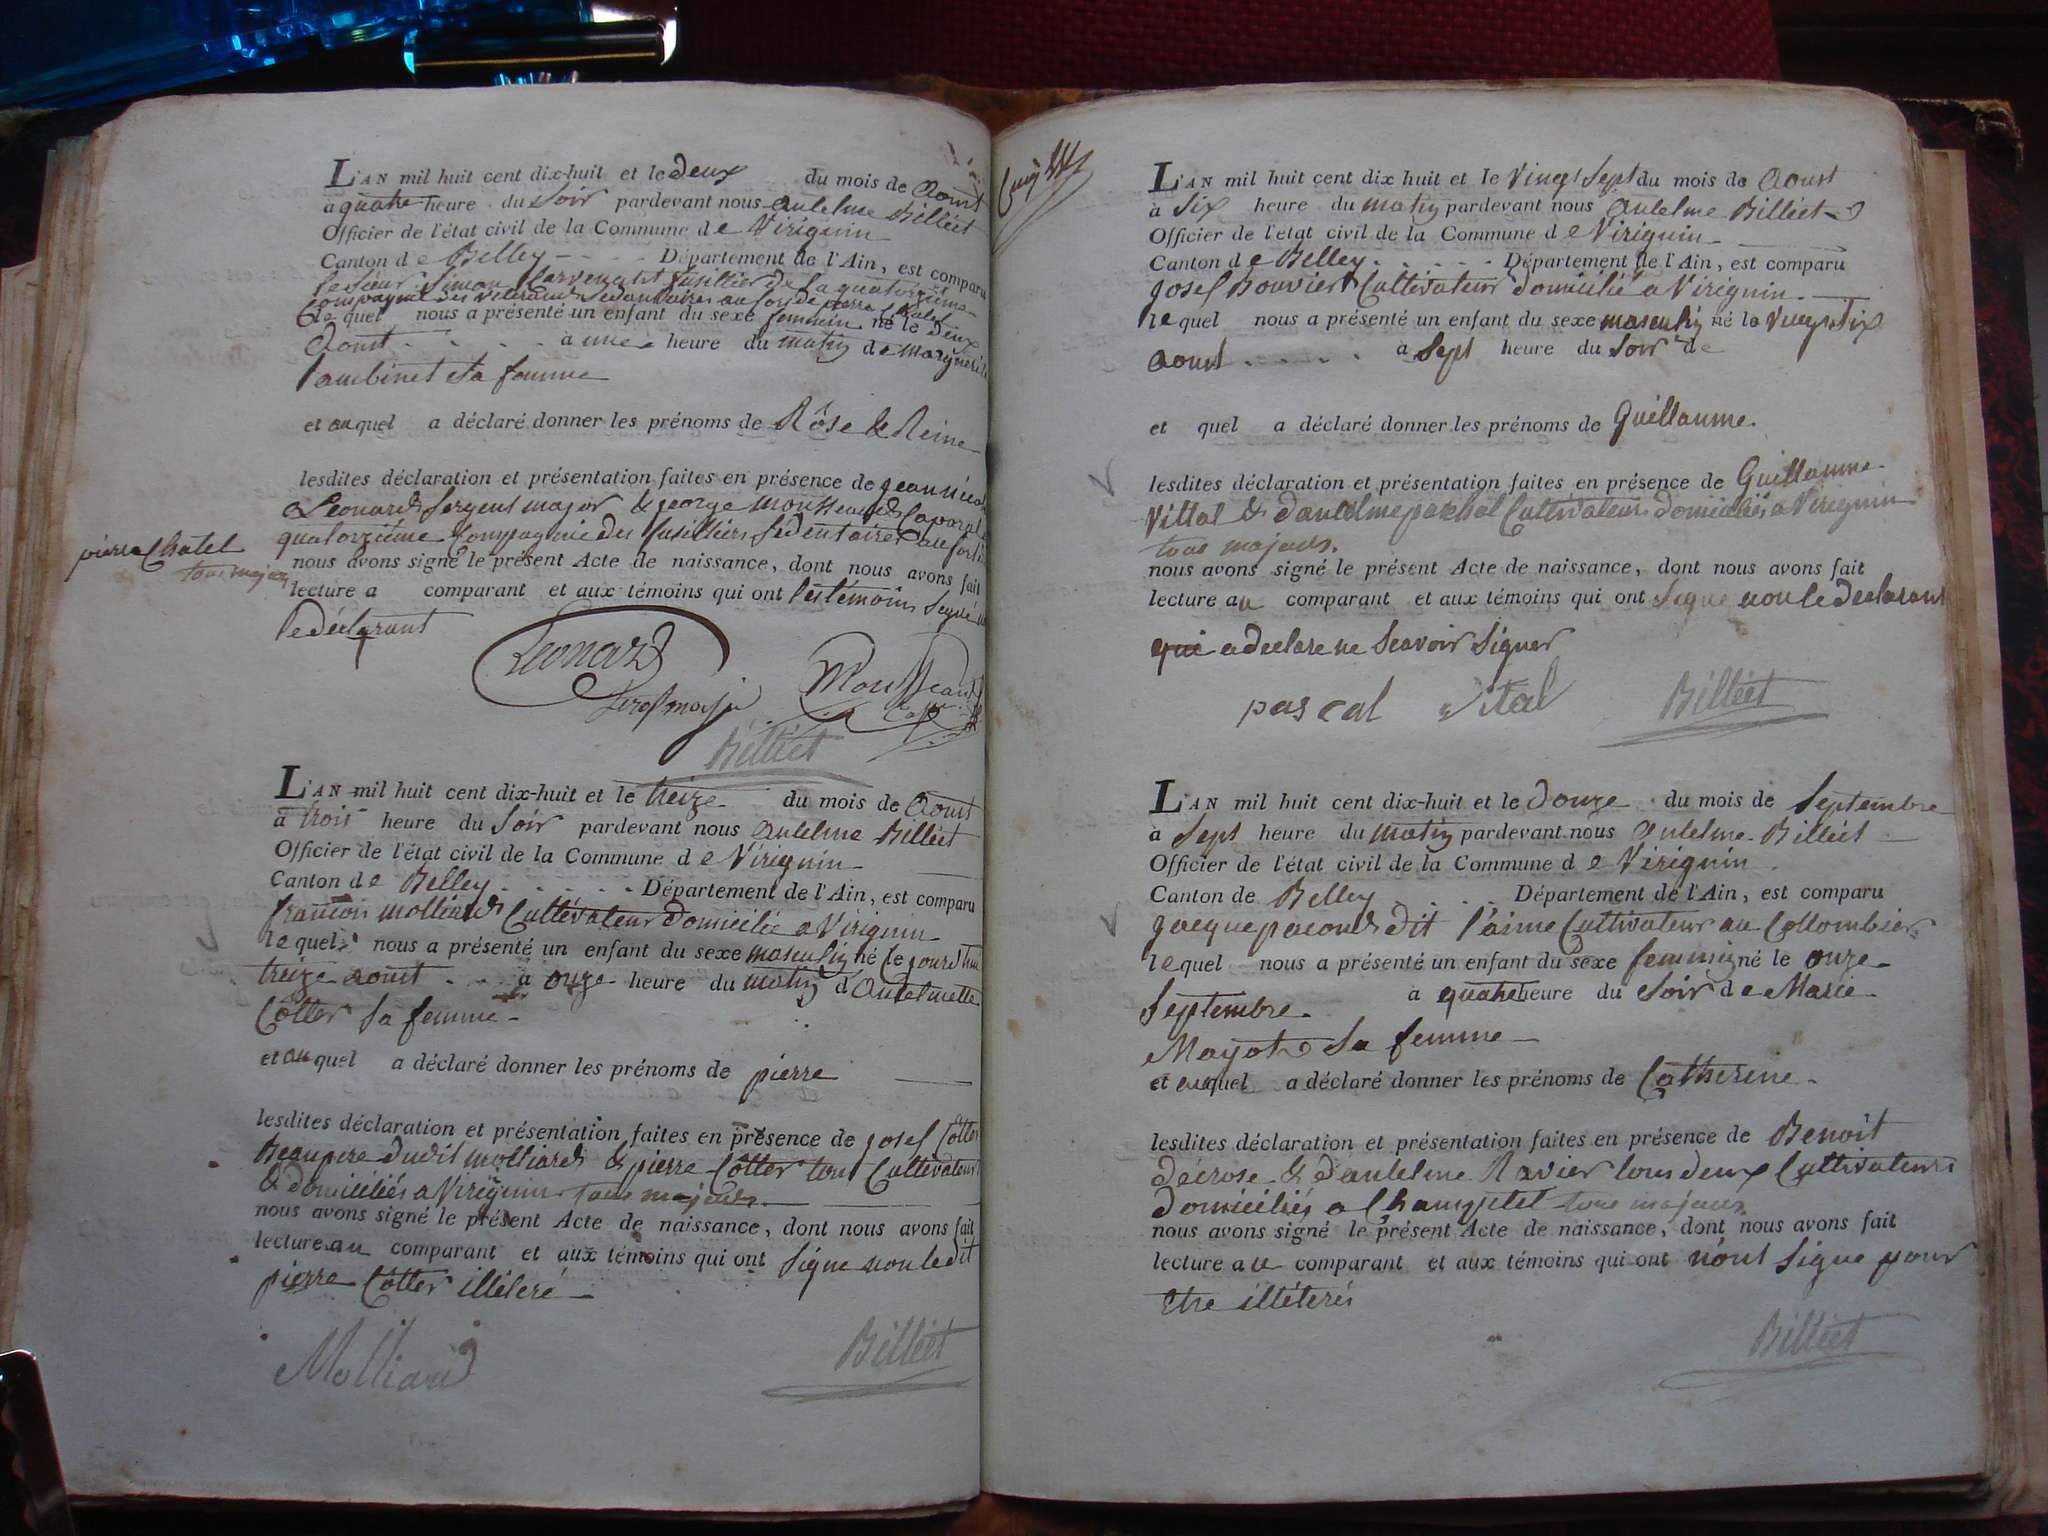 L'AN mil huit cent dix-huit et le deux du mois de Aoust
à quatre heure du Soir pardevant nous Antelme Billiet
Officier de l'état civil de la Commune de Virignin
Canton de Belley Département de l'Ain, est comparu
le Sieur Simon fusillier de la quatorzième
compagnie des veterans Sedentaires au fort de pierre Chatel
le quel nous a présenté un enfant du sexe feminin né le deux
Aoust à une heure du matin de margueritte
Lambinet Sa femme
et auquel a déclaré donner les prénoms de Rôse & Reine
lesdites déclaration et présentation faites en présence de
Leonard Sergent major & george mousseaud Caporal
quatorzième Compagnie des fusilliers Sedentaires au fort
pierre Chatel
tous majeurs
nous avons signé le présent Acte de naissance, dont nous avons fait
lecture a comparant et aux témoins qui ont les témoins Signé
le déclarant
Leonard
Serg major
Mousseaud
Billiet
L'AN mil huit cent dix-huit et le treize du mois de Aoust
à trois heure du Soir pardevant nous Antelme Billiet
Officier de l'état civil de la Commune de Virignin
Canton de Belley Département de l'Ain, est comparu
francois molliard Cultivateur domicilié a Virignin
lequel nous a présenté un enfant du sexe masculin né le jourd'hui
treize aoust à onze heure du matin d'Antelmette
Cotter Sa femme
et auquel a déclaré donner les prénoms de pierre
lesdites déclaration et présentation faites en présence de josef Cotter
Beaupere dudit molliard & pierre Cotter tous Cultivateurs
& domiciliés a Virignin tous majeurs
nous avons signé le présent Acte de naissance, dont nous avons fait
lecture au comparant et aux témoins qui ont Signe non ledit
pierre Cotter illiteré
Molliard
Billiet
L'AN mil huit cent dix huit et le Vingt Sept du mois de Aoust
à Six heure du matin pardevant nous Antelme Billiet
Officier de l'état civil de la Commune de Virignin
Canton de Belley Département de l'Ain, est comparu
josef Bouvier Cultivateur domicilié a Virignin
lequel nous a présenté un enfant du sexe masculin né le Vingt Six
aoust à Sept heure du Soir de
et quel a déclaré donner les prénoms de Guillaume.
lesdites déclaration et présentation faites en présence de Guillaume
Vittal & d'antelme paschal Cultivateurs domiciliés a Virignin
tous majeurs.
nous avons signé le présent Acte de naissance, dont nous avons fait
lecture au comparant et aux témoins qui ont Signe non le declarant
qui a declare ne Scavoir Signer
pascal Vital Billiet
L'AN mil huit cent dix-huit et le douze du mois de Septembre
à Sept heure du matin pardevant nous Antelme Billiet
Officier de l'état civil de la Commune de Virignin
Canton de Belley Département de l'Ain, est comparu
jacque pacoud dit l'aine Cultivateur au Collombier
lequel nous a présenté un enfant du sexe feminin né le onze
Septembre à quatre heure du Soir de Marie
Mayot Sa femme
et auquel a déclaré donner les prénoms de Catherine.
lesdites déclaration et présentation faites en présence de Benoit
Décrose & d'antelme Ravier tous deux Cultivateurs
domiciliés a tous majeurs
nous avons signé le présent Acte de naissance, dont nous avons fait
lecture au comparant et aux témoins qui ont n'ont Signe pour
Etre illiterés
Billiet